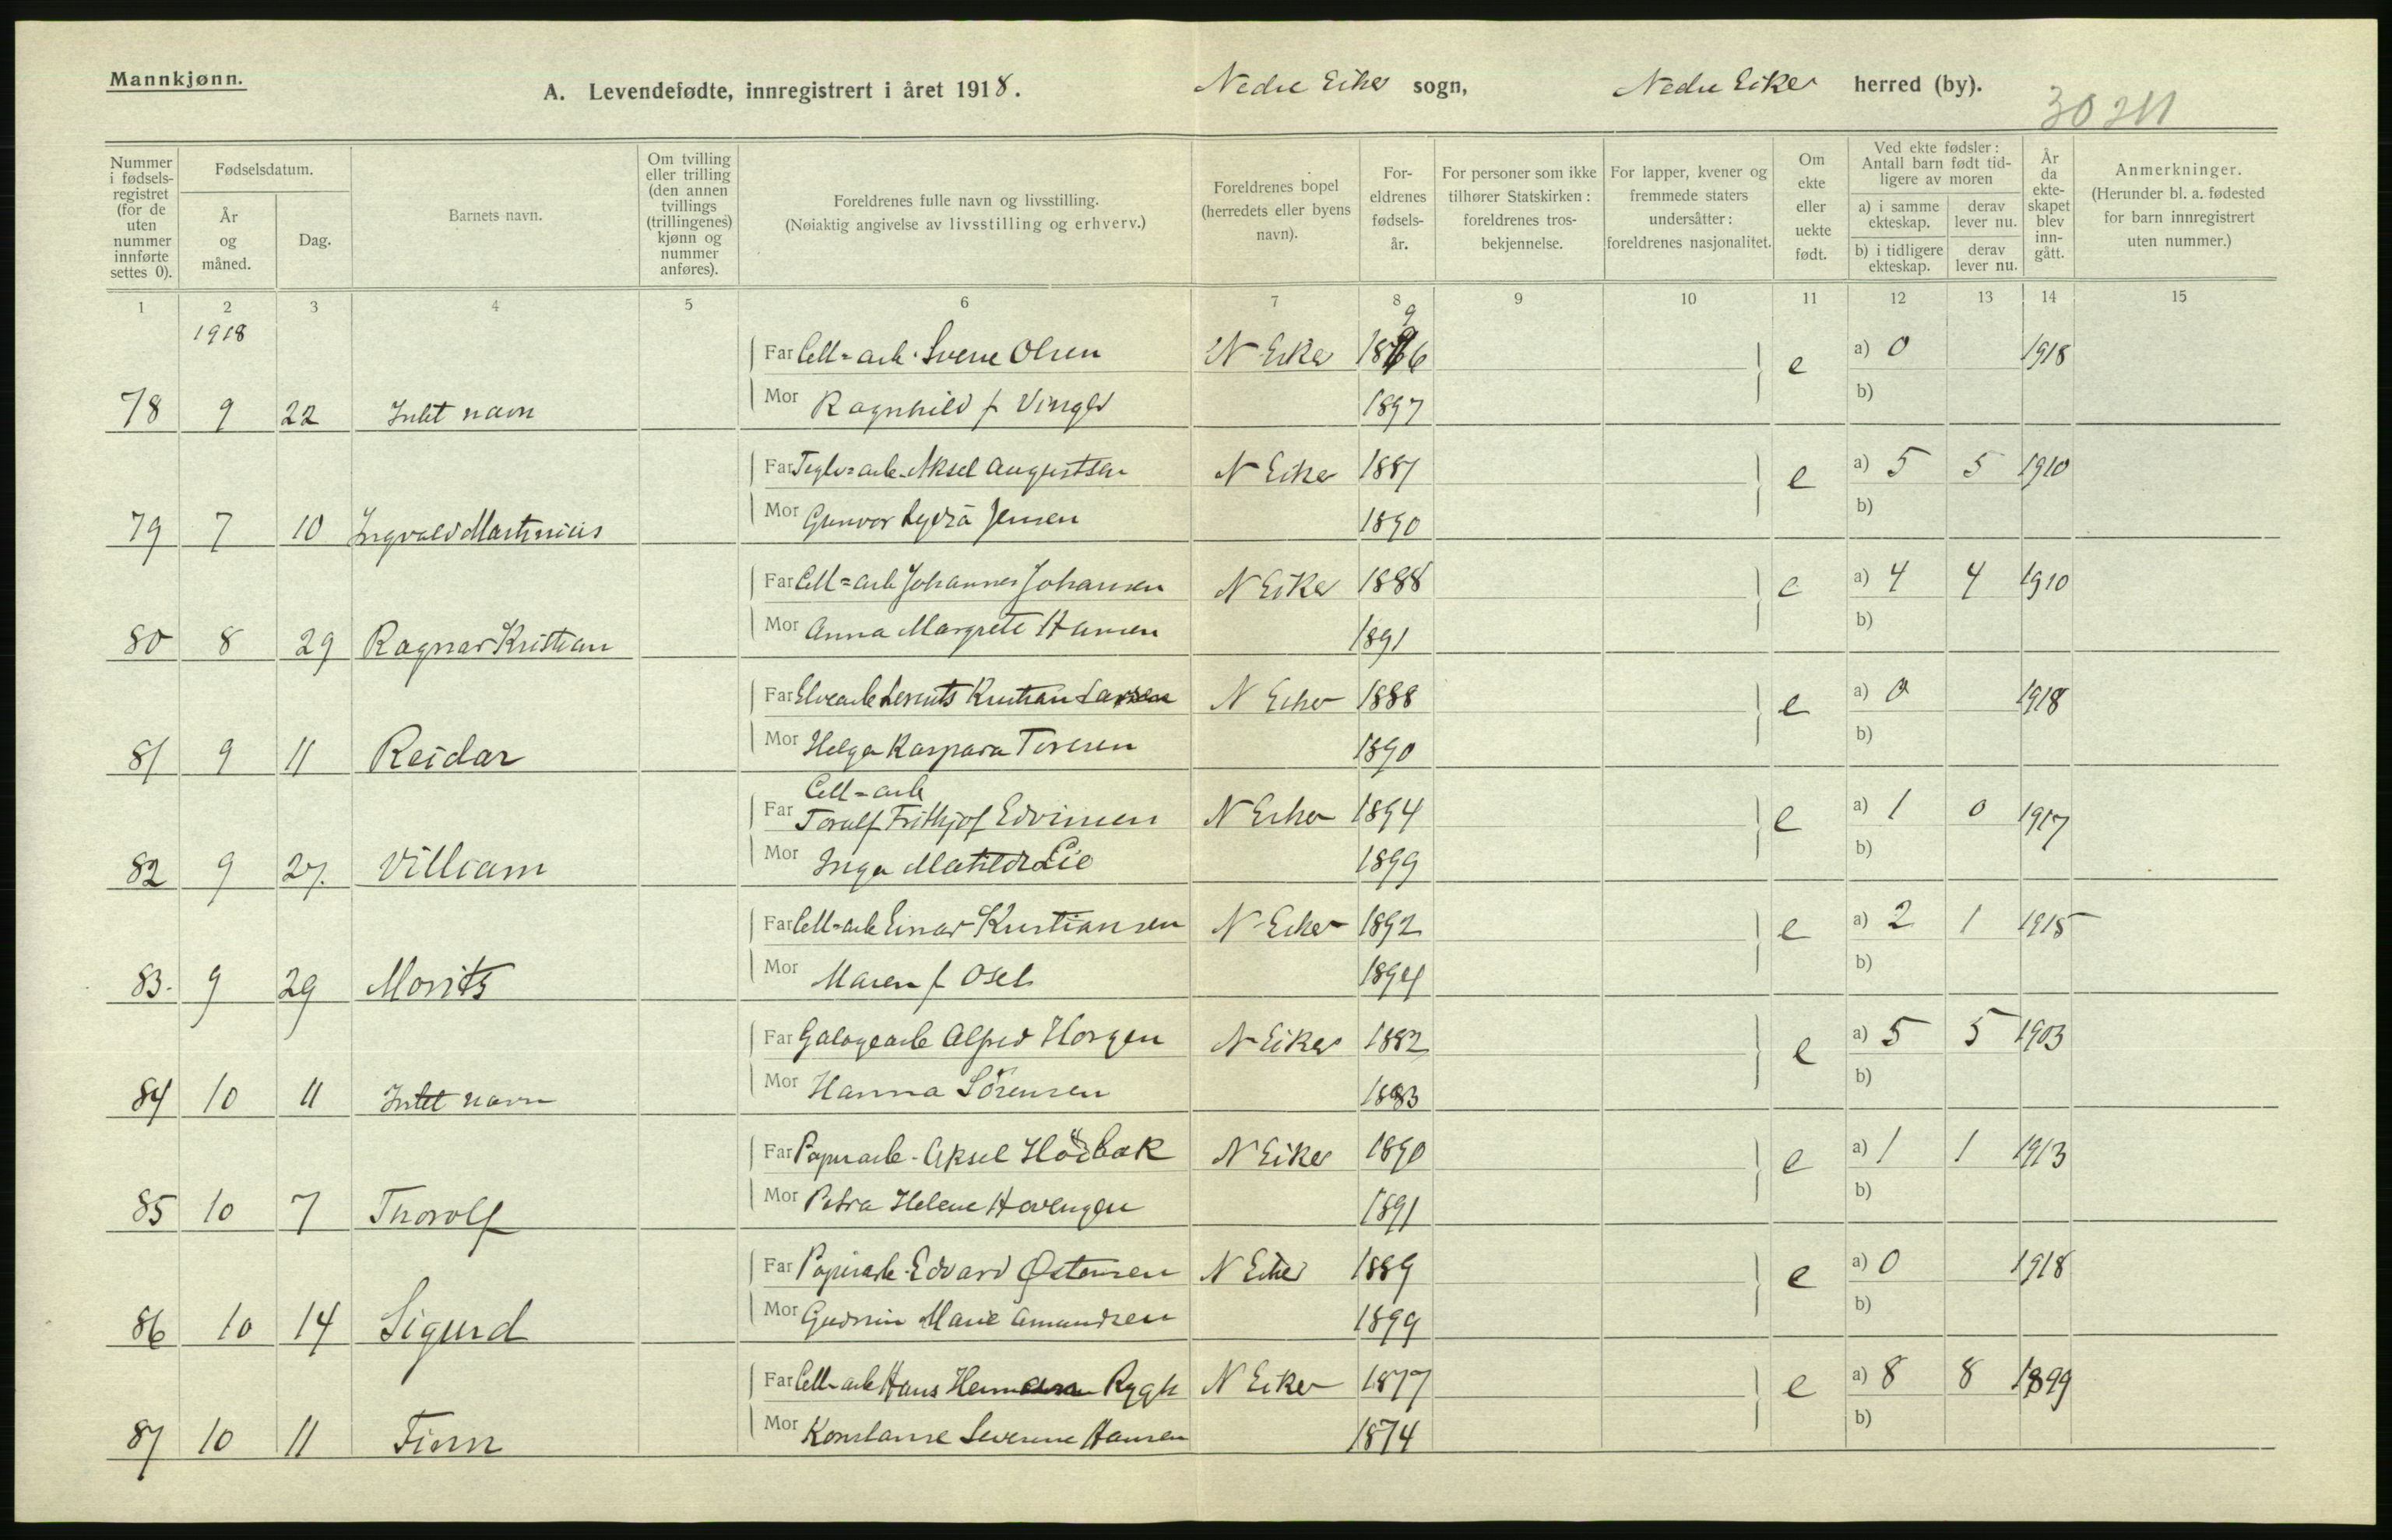 Mannkjønn.
A. Levendefødte, innregistrert i året 1918. Nedre Eiker sogn, Nedre Eiker herred (by).
30211
Nummer i fødsels-registret (for de uten nummer innførte settes 0).
Fødselsdatum.
År og måned.
Dag.
Barnets navn.
Om tvilling eller trilling (den annen tvillings (trillingenes) kjønn og nummer anføres).
Foreldrenes fulle navn og livsstilling.
(Nøiaktig angivelse av livsstilling og erhverv.)
Foreldrenes bopel (herredets eller byens navn).
For-eldrenes fødsels-år.
For personer som ikke tilhører Statskirken: foreldrenes tros-bekjennelse.
For lapper, kvener og fremmede staters undersåtter: foreldrenes nasjonalitet.
Om ekte eller uekte født.
Ved ekte fødsler: Antall barn født tid-ligere av moren
a) i samme ekteskap.
derav lever nu.
b) i tidligere ekteskap.
derav lever nu.
År da ekte-skapet blev inn-gått.
Anmerkninger.
(Herunder bl. a. fødested for barn innregistrert uten nummer.)
1 2 3 4 5 6 7 8 9 10 11 12 13 14 15
1918
Far Cell=arb. Sverre Olsen N Eiker 1896 e a) 0 1918
78 9 22 Intet navn Mor Ragnhild f Vinger 1897 b)
Far Teglv=arb. Aksel Augustsen N Eiker 1887 e a) 5 5 1910
79 7 10 Ingvald Martinius Mor Gunvor Lydia Jensen 1890 b)
Far Cell=arb Johannes Johansen N Eiker 1888 e a) 4 4 1910
80 8 29 Ragnar Kristian Mor Anna Margrete Hansen 1891 b)
Far Elvearb Lorents Kristian Larsen N Eiker 1888 e a) 0 1918
81 9 11 Reidar Mor Helga Kaspara Toresen 1890 b)
Cell=arb
Far Toralf Frithjof Edvinsen N Eiker 1894 e a) 1 0 1917
82 9 27. Villiam Mor Inga Matilde Lie 1899 b)
Far Cell=arb Einar Kristiansen N Eiker 1892 e a) 2 1 1915
83. 9 29 Morits Mor Maren f Oseb 1894 b)
Far Galogearb Alfred Horgen N Eiker 1882 e a) 5 5 1903
84 10 11 Intet navn Mor Hanna Sörensen 1883 b)
Far Papirarb. Aksel Höibak N Eiker 1890 e a) 1 1 1913
85 10 7 Thorolf Mor Petra Helene Hovengen 1891 b)
Far Papirarb. Edvard Østensen N Eiker 1889 e a) 0 1918
86 10 14 Sigurd Mor Gudrun Marie Amundsen 1899 b)
Far Cell=arb Hans Hermann Rygh N Eiker 1877 e a) 8 8 1899
87 10 11 Finn Mor Konstanse Severine Hansen 1874 b)